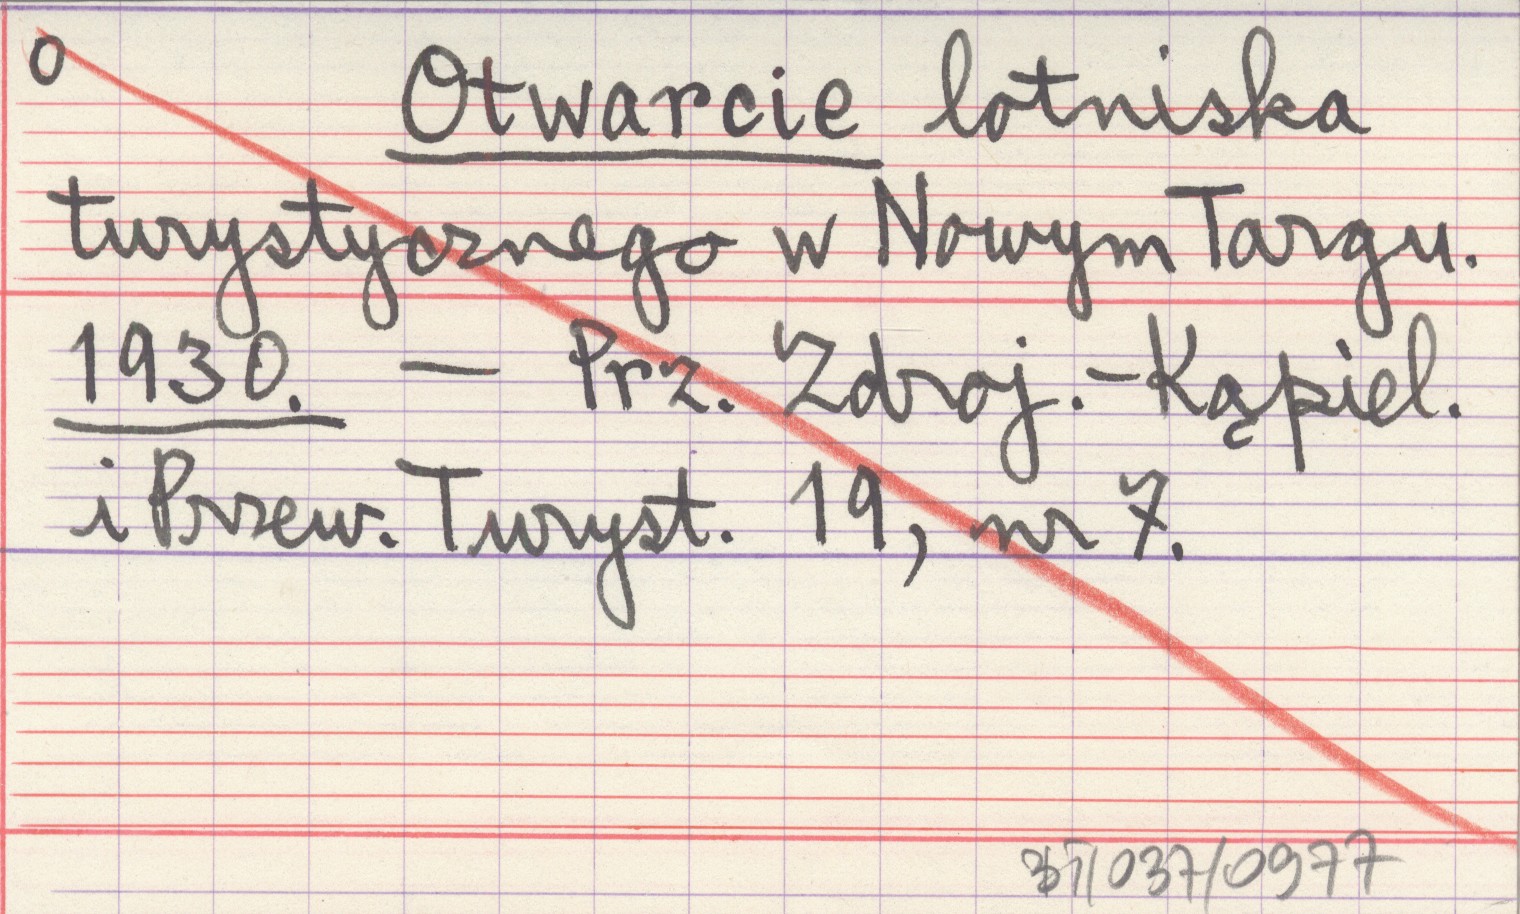 o
Otwarcie lotniska
turystycznego w Nowym Targu.
1930. — Prz. Zdroj.-Kąpiel.
i Przew. Turyst. 19, nr 7.
/037/0977